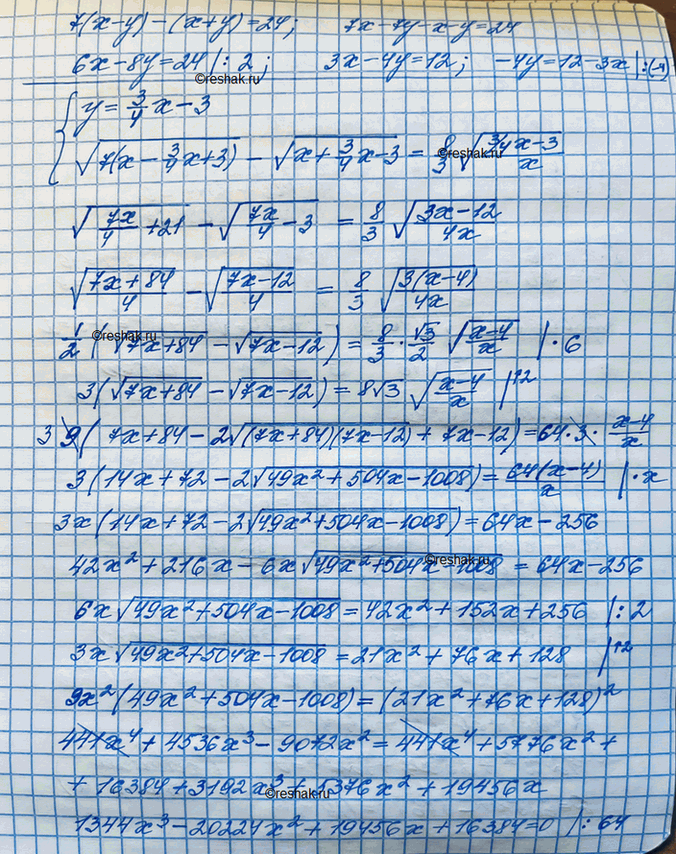 7(x-y)-(x+y)=24;   7x-7y-x-y=24
6x-8y=24 |:2;   3x-4y=12;   -4y=12-3x |:(-4)
©reshak.ru
{ y = 3/4 x - 3
√(7(x - 3/4 x + 3)) - √(x + 3/4 x - 3) = 8/3 √((3/4 x - 3)/x)
©reshak.ru
√(7x/4 + 21) - √(7x/4 - 3) = 8/3 √((3x-12)/4x)
√((7x+84)/4) - √((7x-12)/4) = 8/3 √(3(x-4)/4x)
1/2 (√(7x+84) - √(7x-12)) = 8/3 · √3/2 √((x-4)/x) |·6
©reshak.ru
3(√(7x+84) - √(7x-12)) = 8√3 √((x-4)/x) |↑2
3 9(7x+84 - 2√((7x+84)(7x-12)) + 7x-12) = 64·3· (x-4)/x
3(14x+72 - 2√(49x²+504x-1008)) = 64(x-4)/x |·x
3x(14x+72 - 2√(49x²+504x-1008)) = 64x-256
42x²+216x - 6x√(49x²+504x-1008) = 64x-256
©reshak.ru
6x√(49x²+504x-1008) = 42x²+152x+256 |:2
3x√(49x²+504x-1008) = 21x²+76x+128 |↑2
9x²(49x²+504x-1008) = (21x²+76x+128)²
441x⁴+4536x³-9072x² = 441x⁴+5776x²+
+16384+3192x³+5376x²+19456x
©reshak.ru
1344x³-20224x²+19456x+16384=0 |:64